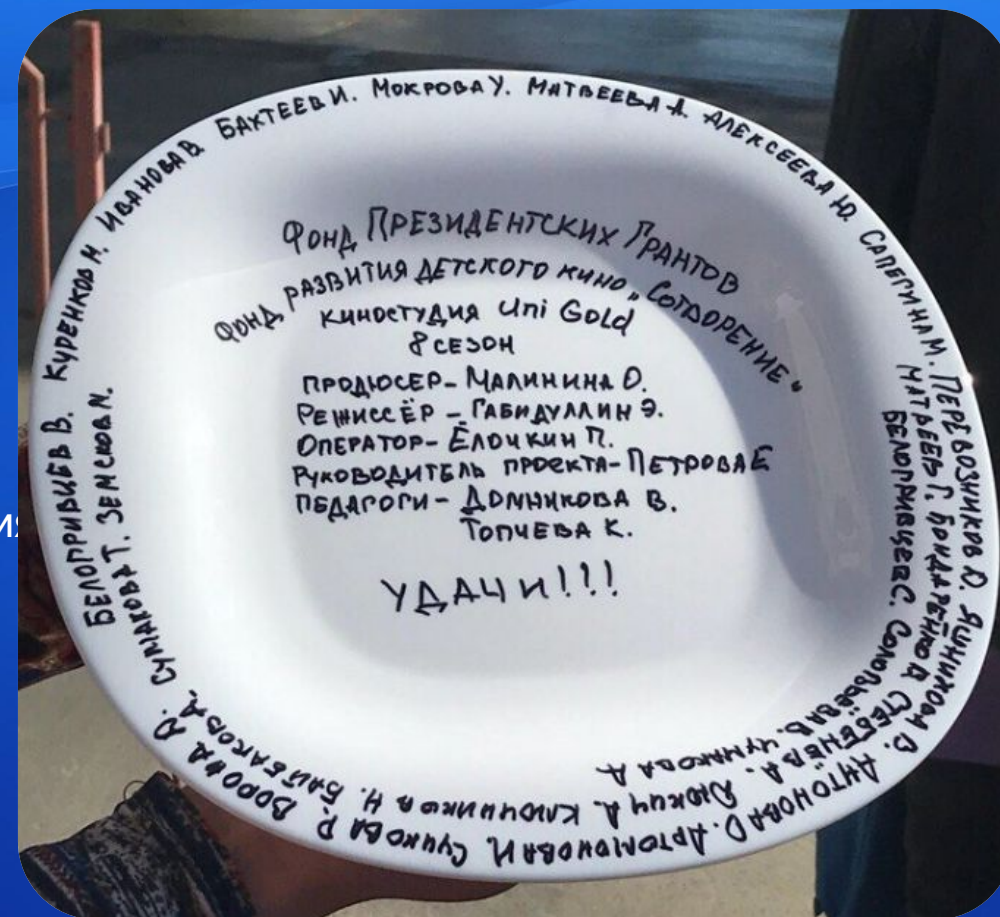 Фонд Президентских Грантов
Фонд развития детского кино „Сотворение"
киностудия Uni Gold
8 сезон
продюсер – Малинина О.
Режиссёр – Габидуллин Э.
Оператор – Ёлочкин П.
Руководитель проекта – Петрова Е
Педагоги – Домникова В.
Топчева К.
УДАЧИ!!!
Белопривцев В. Куренков Н. Иванова В. Бахтеев И. Мокрова У. Матвеева А. Алексеева Ю. Сапегина М. Перевозников Д. Яшникова В. Антонова О. Артюнова И. Сучкова Р. Ворова Д. Сумакова Т. Земсков М.
Матвеев Г. Бондаренко В. Стебенёва А. Дюкич А. Ключников Н. Байбакова А.
Белопривцев С. Соловьёва В. Чумакова А